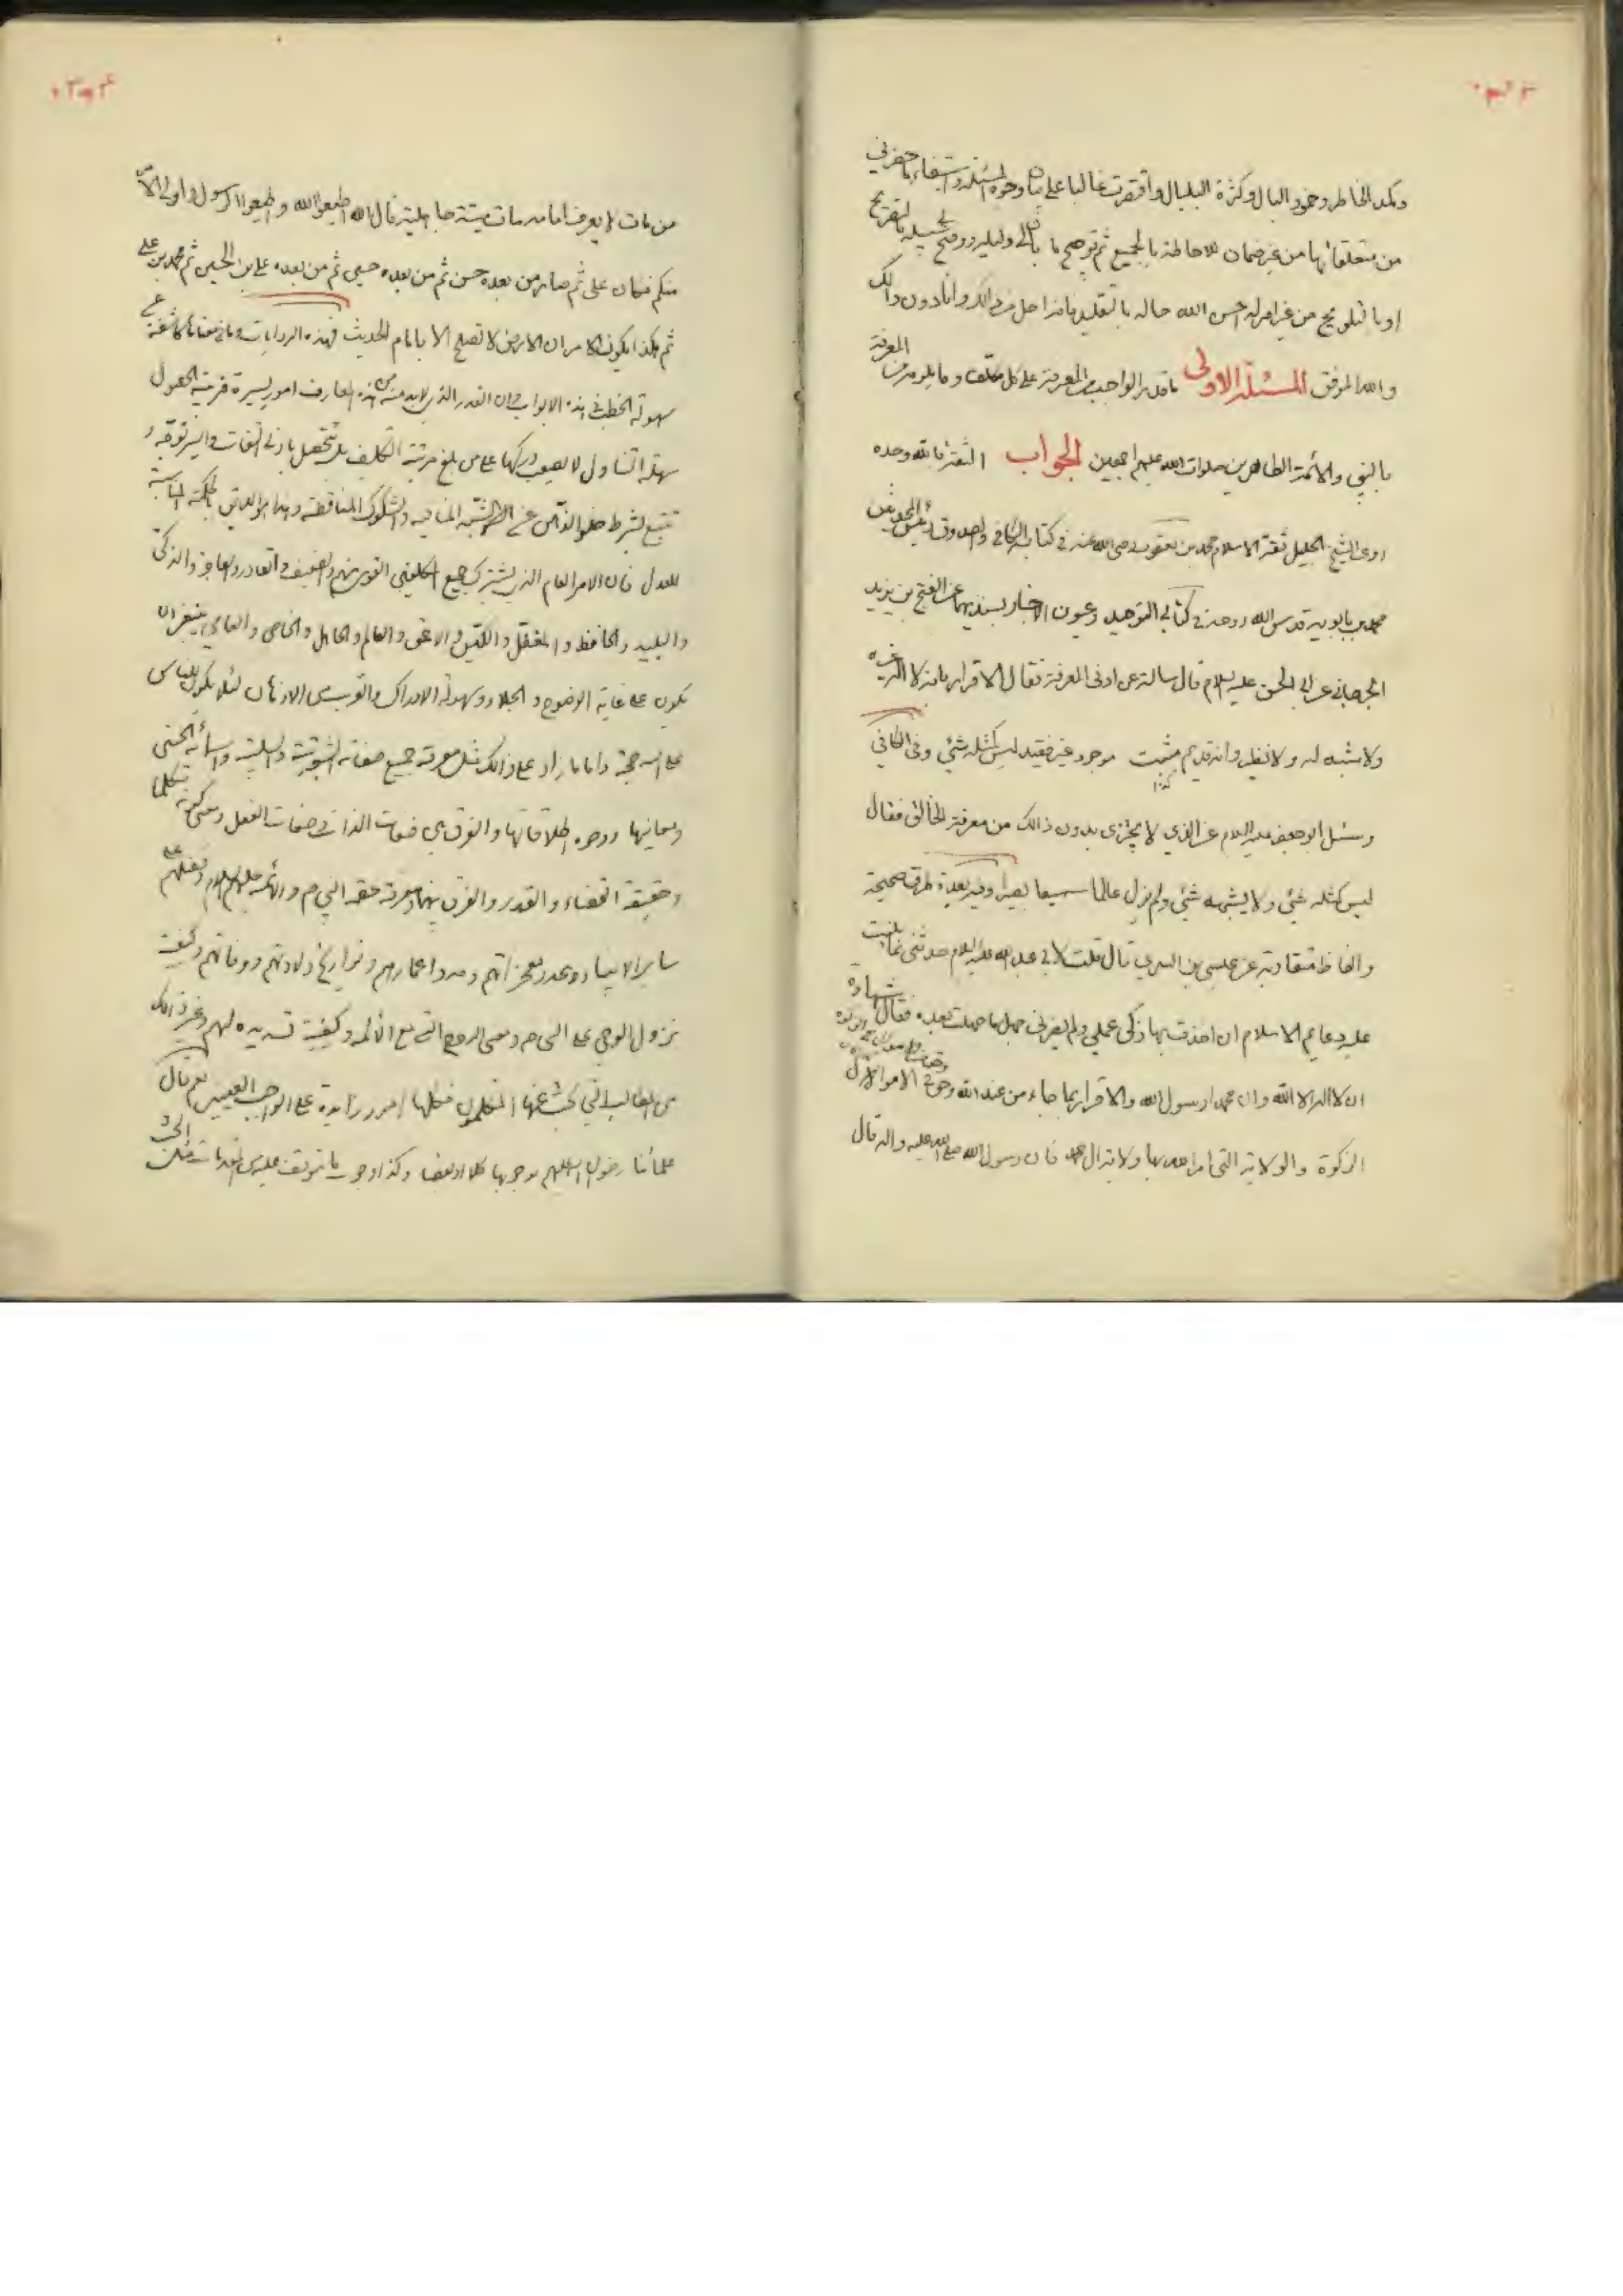 وتكدر الخاطر وخمود البال وكثرة البلبال واقتصرت غالبا على بيان وجوه المسئلة واستيفاء ما حضرني
من متعلقاتها من غير ضمان للاحاطة بالجميع ثم توضيح ما بان لي دليله ووضح لي سبيله بالتصريح
او بالتلويح من غير امر له احسن الله حاله بالتقليد فانه اجل من ذلك وانا دون ذلك
والله الموفق المسئلة الاولى ما قدر الواجب من المعرفة على كل مكلف وما يلزم من المعرفة
بالنبي والائمة الطاهرين صلوات الله عليهم اجمعين الجواب الثقة بالله وحده
روى الشيخ الجليل ثقة الاسلام محمد بن يعقوب رضي الله عنه في كتابه الكافي والصدوق رئيس المحدثين
محمد بن بابويه قدس الله روحه في كتابي التوحيد وعيون الاخبار بسنديهما عن الفتح بن يزيد
الجرجاني عن ابي الحسن عليه السلام قال سالته عن ادنى المعرفة فقال الاقرار بانه لا اله غيره
ولا شبه له ولا نظير وانه قديم مثبت موجود غير فقيد ليس كمثله شئي وفي الكافي
كذا
وسئل ابو جعفر عليه السلام عن الذي لا يجتزى بدون ذالك من معرفة الخالق فقال
ليس كمثله شئي ولا يشبهه شئي ولم يزل عالما سميعا بصيرا وفيه بعدة طرق صحيحة
والفاظ متقاربة عن عيسى بن السري قال قلت لابي عبد الله عليه السلام حدثني عما بنيت
عليه دعايم الاسلام ان اخذت بها زكى عملي ولم يضرني جهل ما جهلت بعده فقال شهادة
ان لا اله الا الله وان محمدا رسول الله والاقرار بما جاء من عند الله وحق في الاموال
الزكوة والولاية التي امر الله بها ولاية ال محمد فان رسول الله صلى الله عليه واله قال
من مات لا يعرف امامه مات ميتة جاهلية قال الله اطيعوا الله واطيعوا الرسول واولي الامر
منكم فكان علي ثم صار من بعده حسن ثم من بعده حسين ثم من بعده علي بن الحسين ثم محمد بن علي
ثم هكذا يكون الامر ان الارض لا تصلح الا بامام الحديث فهذه الروايات وما في معناها كاشفة عن
سهولة الخطب في هذه الابواب وان القدر الذي لا بد منه من هذه المعارف امور يسيرة قريبة الحصول
سهلة التناول لا يصعب دركها على من بلغ مرتبة التكليف بل تتحصل بادنى التفات وايسر توجه
وتتبع بشرط خلو الذهن عن الشبه المنافية والشكوك المناقضة وهذا هو اللايق بالحكمة المناسبة
للعدل فان الامر العام الذي يشترك جميع المكلفين القوي منهم والضعيف والقادر والعاجز والذكي
والبليد والحافظ والمغفل والكيس والاحمق والعالم والجاهل والخاص والعامي ينبغي ان
يكون على غاية الوضوح والجلاء وسهولة الادراك والقرب من الاذهان لئلا يكون للناس
على الله حجة واما ما زاد على ذالك مثل معرفة جميع صفاته الثبوتية والسلبية واسمائه الحسنى
ومعانيها ووجوه اطلاقاتها والفرق بين صفات الذات وصفات الفعل ومعنى كونه متكلما
وحقيقة القضاء والقدر والفرق بينهما ومعرفة حقه النبي ص والائمة عليهم السلام وفضلهم على
ساير الانبياء وعدد معجزاتهم ومدد اعمارهم وتواريخ ولادتهم ووفاتهم وكيفية
نزول الوحي على النبي ص ومعنى الروح التي مع الائمة وكيفية تسديده لهم وغير ذالك
من المطالب التي بحث عنها المتكلمون فكلها امور زايدة على الواجب العيني نعم قال
علمائنا رضوان الله عليهم بوجوبها كلا او بعضا وكذا وجوب ما يتوقف عليه من المقدمات